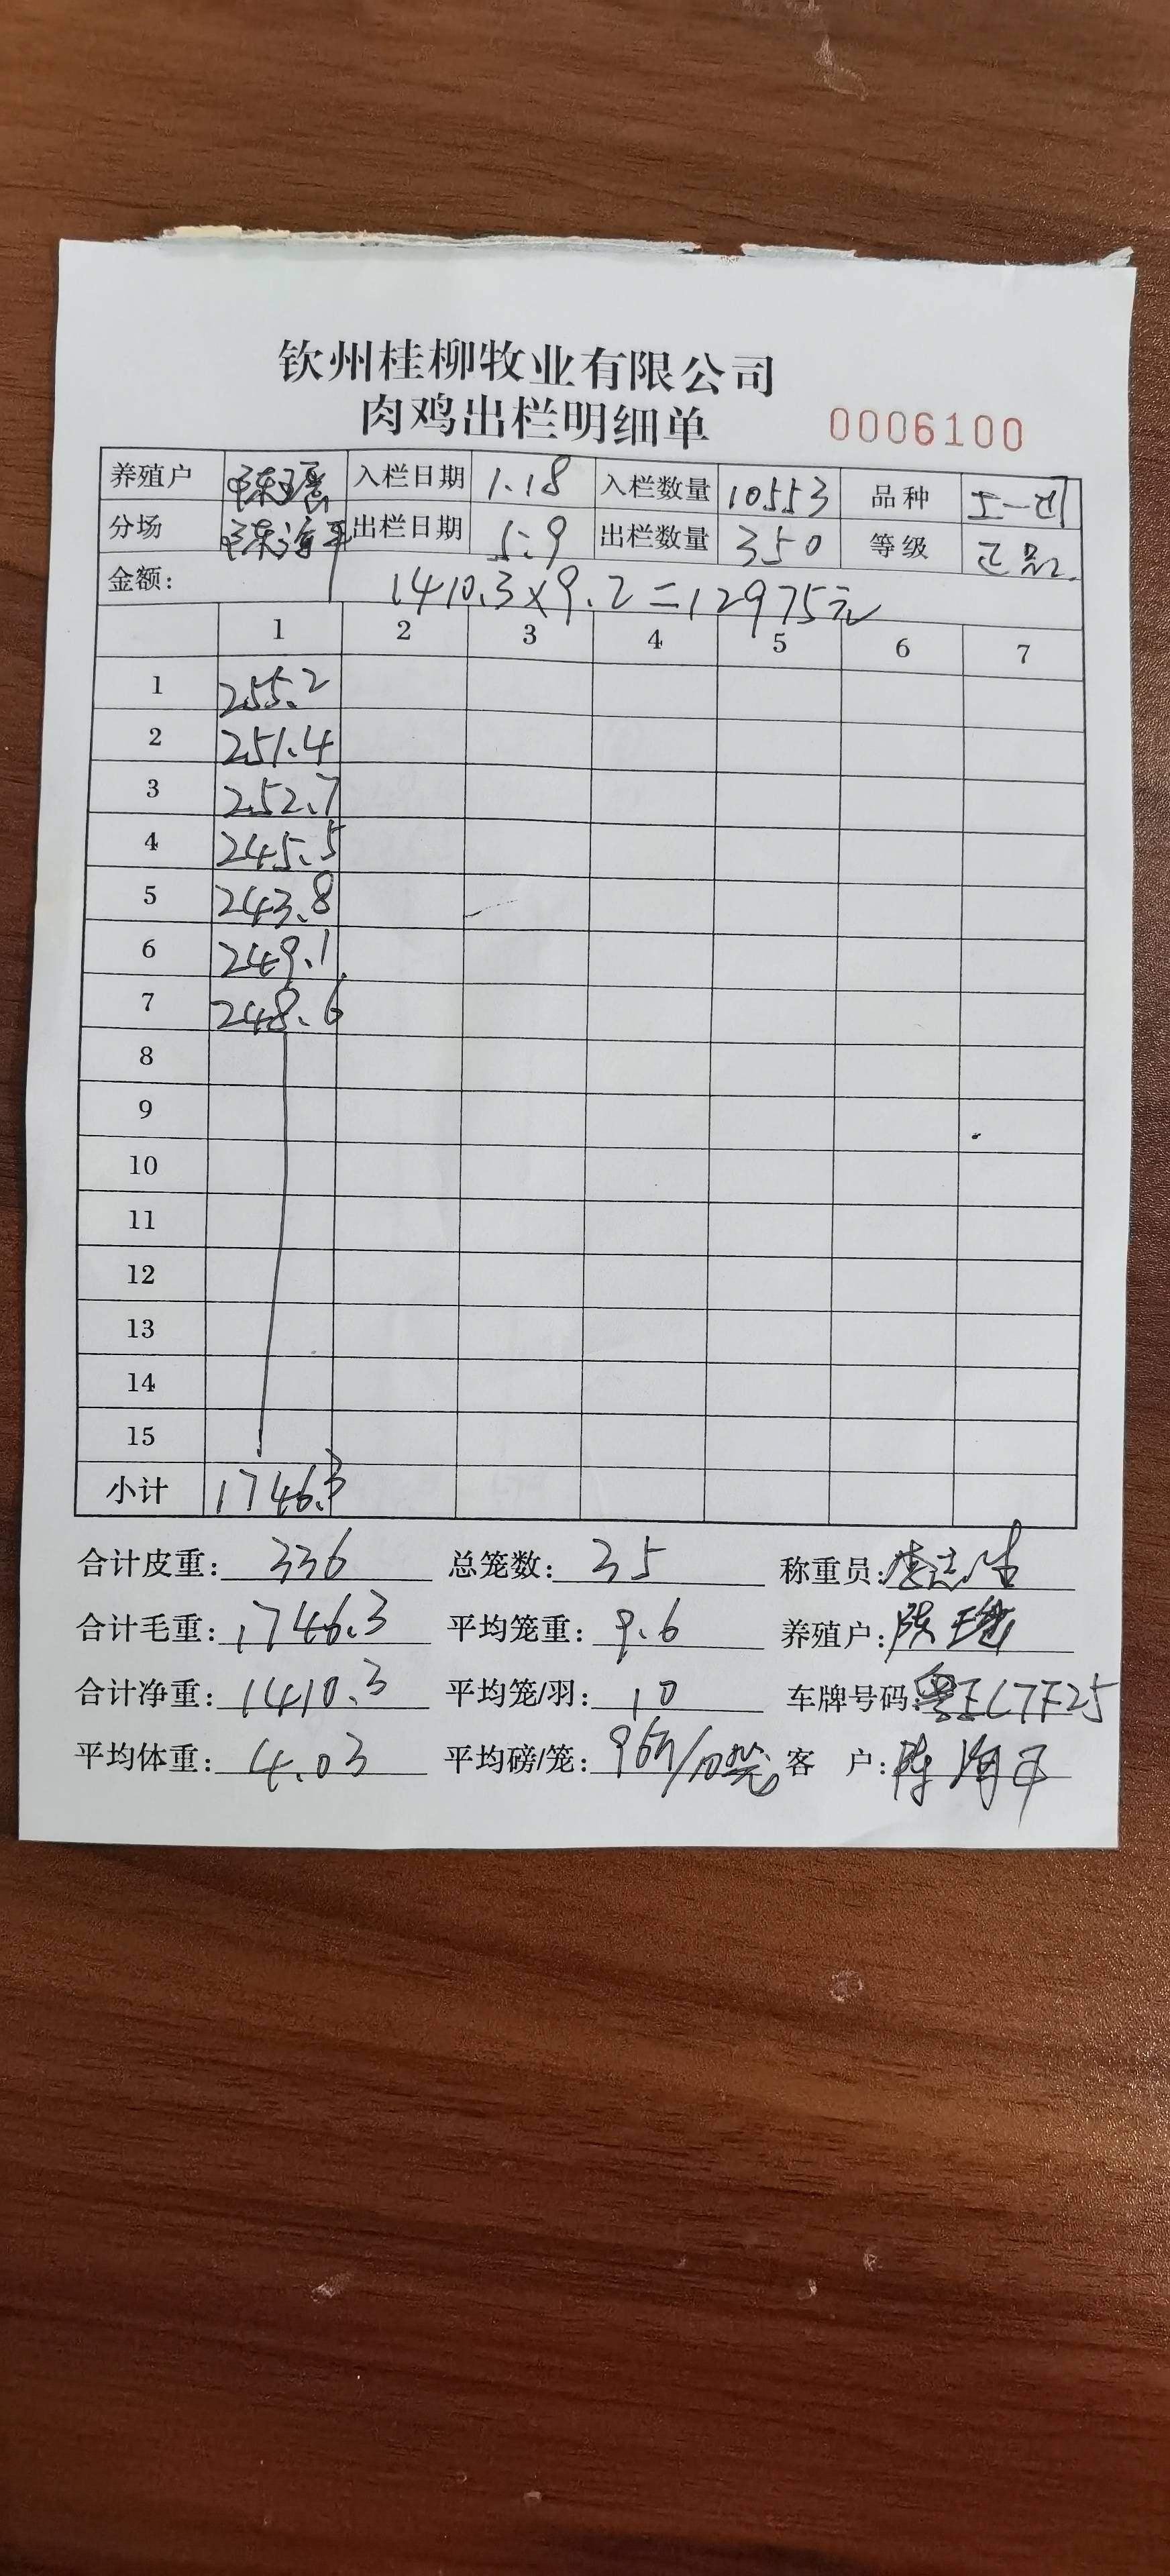 钦州桂柳牧业有限公司
肉鸡出栏明细单 0006100
养殖户 入栏日期 1.18 入栏数量 10553 品种
分场 陈海平 出栏日期 5.9 出栏数量 350 等级 正品.
金额: 1410.3×9.2=12975元
1 2 3 4 5 6 7
1 255.2
2 251.4
3 252.7
4 245.5
5 243.8
6 249.1
7 248.6
8
9
10
11
12
13
14
15
小计 1746.3
合计皮重: 336 总笼数: 35 称重员:
合计毛重: 1746.3 平均笼重: 9.6 养殖户: 陈
合计净重: 1410.3 平均笼/羽: 10 车牌号码:
平均体重: 4.03 平均磅/笼: 客 户: 陈海平